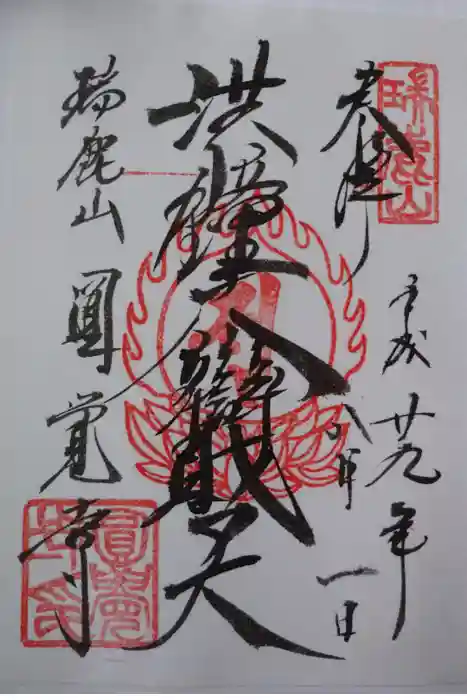 瑞鹿山
奉拝
平成廿九年
八月一日
洪鐘大辨財天
瑞鹿山 圓覚寺